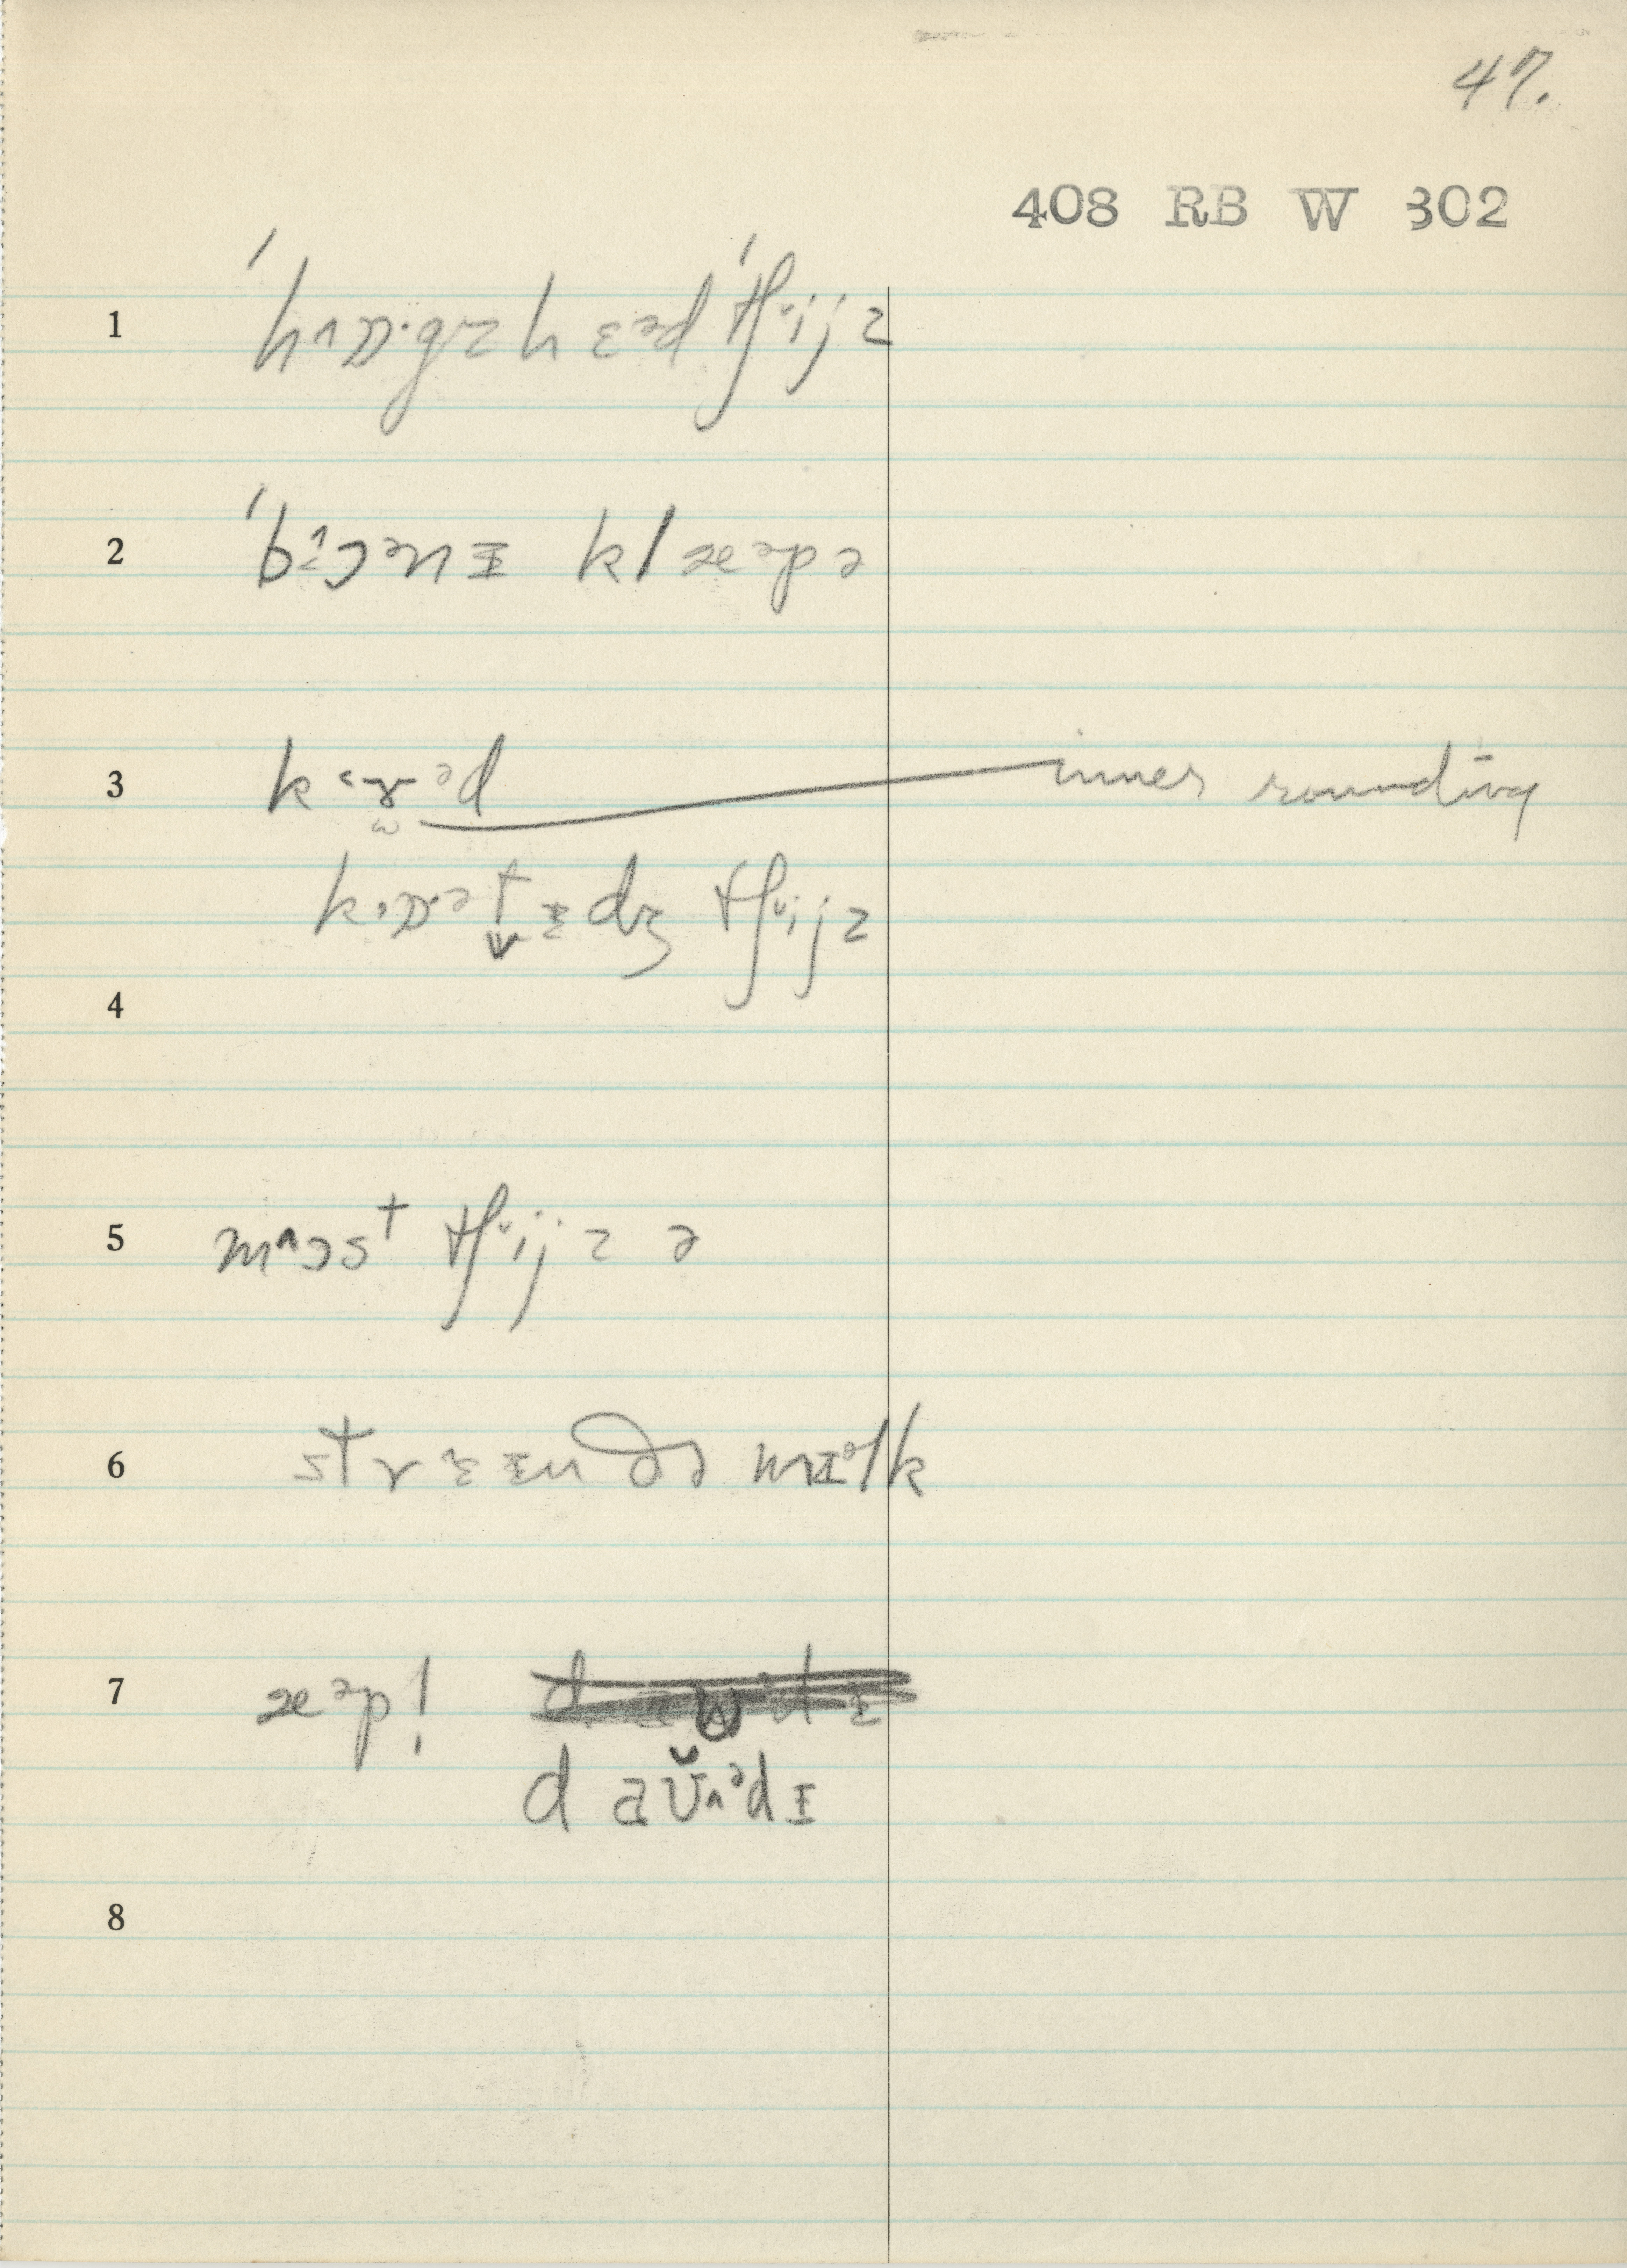 47.
408 RB W 302
1 ˈhʌɒ·gzhɛᵊdˈtʃᵘijz
2 ˈbɔᵊnɪ klæᵊpə
3 k˂ɤᵊd inner rounding
kɒ·ᵊtɪdʒ tʃᵘijz
4
5 m^ɔst tʃᵘijz ə
6 strɛɪn ðə mɪᵊlk
7 æᵊp!
daʊ̆^ᵊdɪ
8